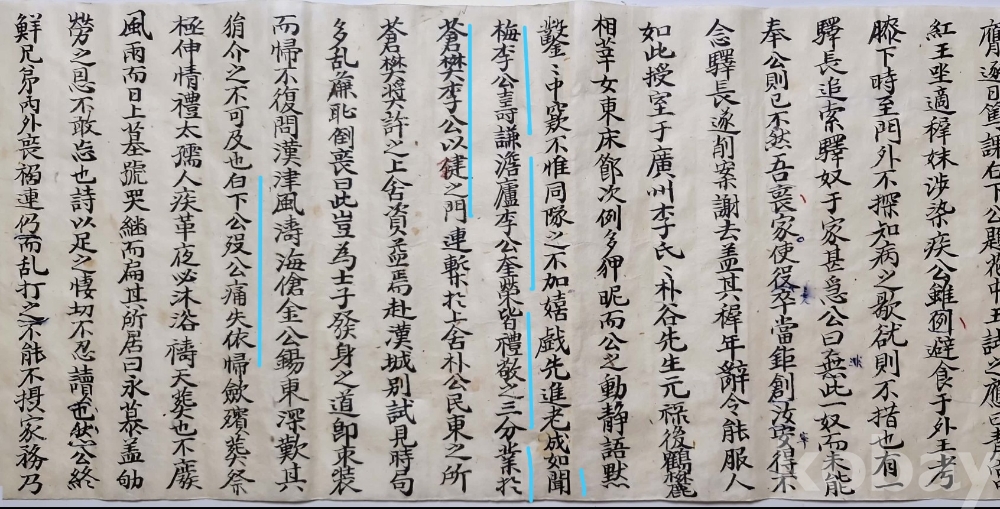 紅王坐適稺妹涉染疾公雖例避食于外王考
膝下時至門外不探知病之歇欲則不措也有一
驛長追索驛奴于家甚急公曰無此一奴而未能
奉公則已不然吾喪家使役卒當鉅創汝安得不
念驛長遂削案謝去盖其稺年辭令能服人
如此授室于廣州李氏〻朴谷先生元祿後鶴
相莘女東床節次例多狎昵而公之動靜語默
鑿〻中窾不惟同隊之不加嬉戱先進老成如聞
梅李公壽謙澹廬李公奎榮皆禮敬之三分業於
蒼樊李公以鍵之門連槧於上舍朴公民東之所
蒼樊將許之上舍資益焉赴漢城別試見時句
多乱廉恥倒喪曰此豈爲士子發身之道卽束裝
而歸不復問漢津風濤海傖金公錫東深歎其
狷介之不可及也白下公歿公痛失依歸歛殯葬祭
極伸情禮太孺人疾革夜必沐浴禱天葬也不廢
風雨而日上墓號哭繼而扁其所居曰永慕盖劬
勞之恩不敢忘也詩以足之悽切不忍讀也公終
鮮兄弟內外喪禍連仍而乱打之不能不摂家務乃
kobay